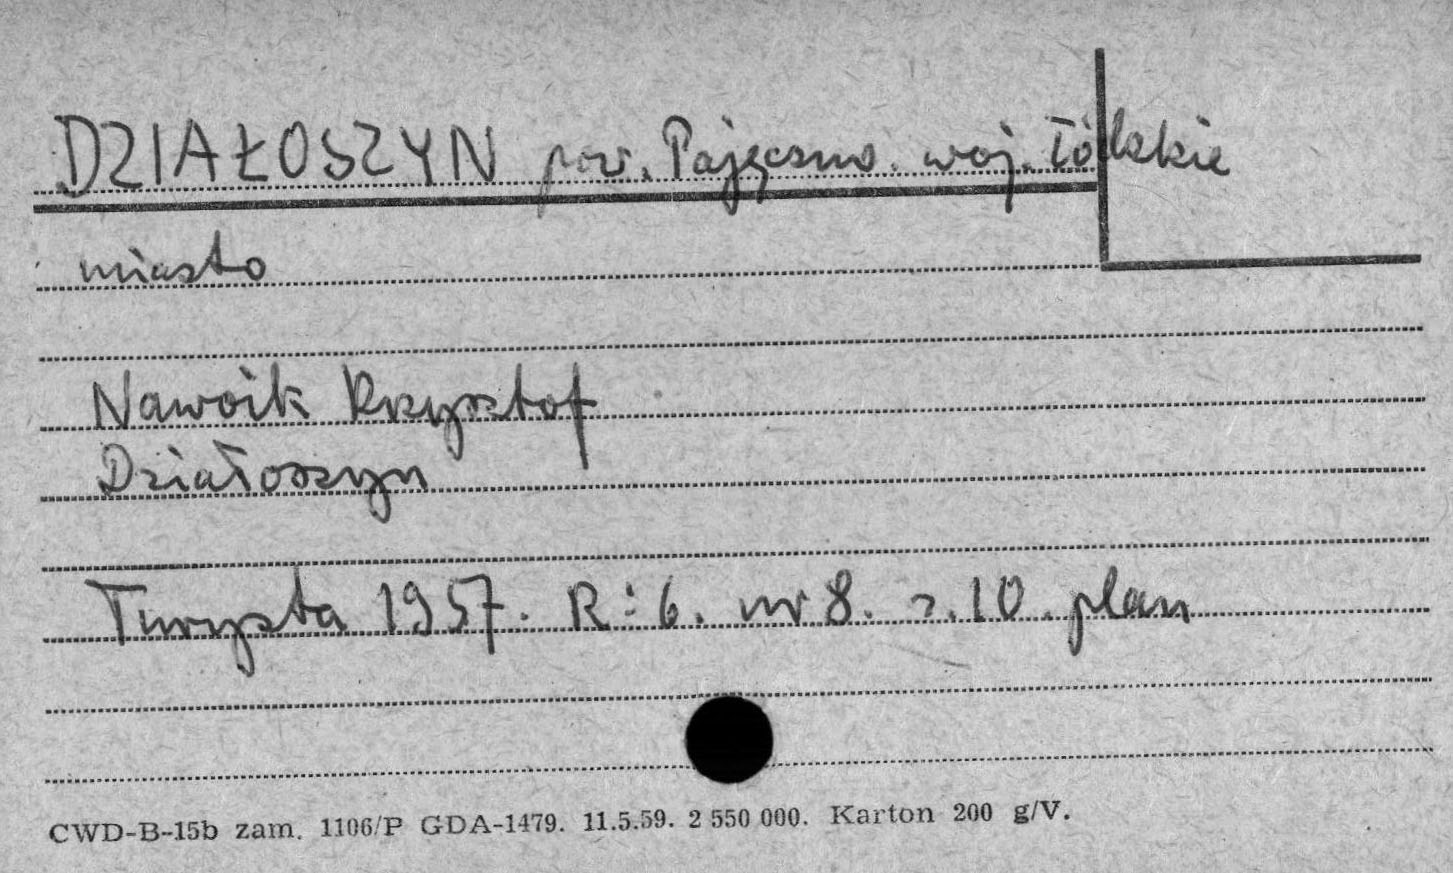 DZIAŁOSZYN pow. Pajęczno. woj. łódzkie
miasto
Nawoik Krzysztof
Działoszyn
Turysta 1957. R: 6. nr 8. s. 10. plan
CWD-B-15b zam. 1106/P GDA-1479. 11.5.59. 2 550 000. Karton 200 g/V.